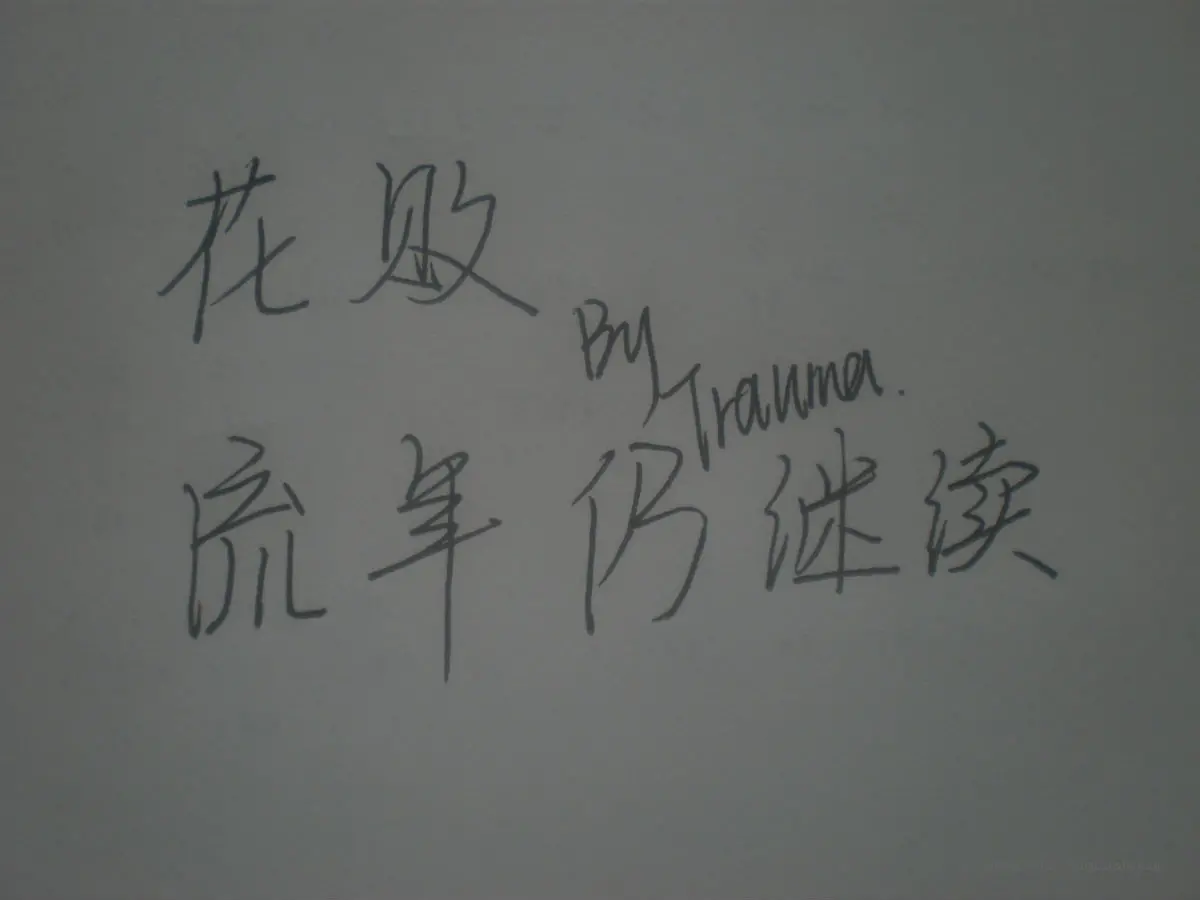 花败
By Trauma.
流年仍继续